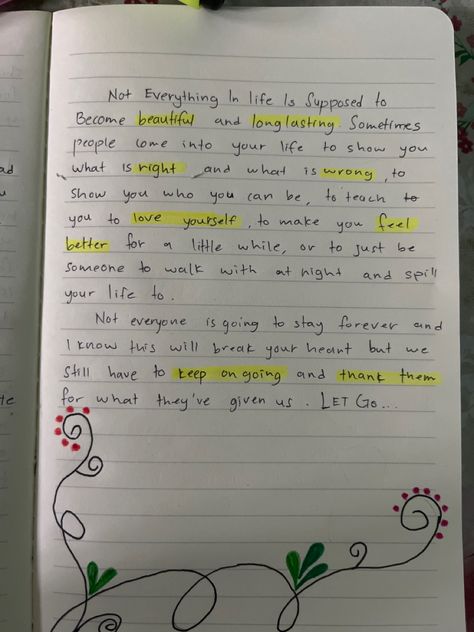 Not Everything In life Is Supposed to
Become beautiful and longlasting. Sometimes
people come into your life to show you
what is right and what is wrong, to
show you who you can be, to teach to
you to love yourself, to make you feel
better for a little while, or to just be
someone to walk with at night and spill
your life to.
Not everyone is going to stay forever and
I know this will break your heart but we
still have to keep on going and thank them
for what they've given us. LET GO...